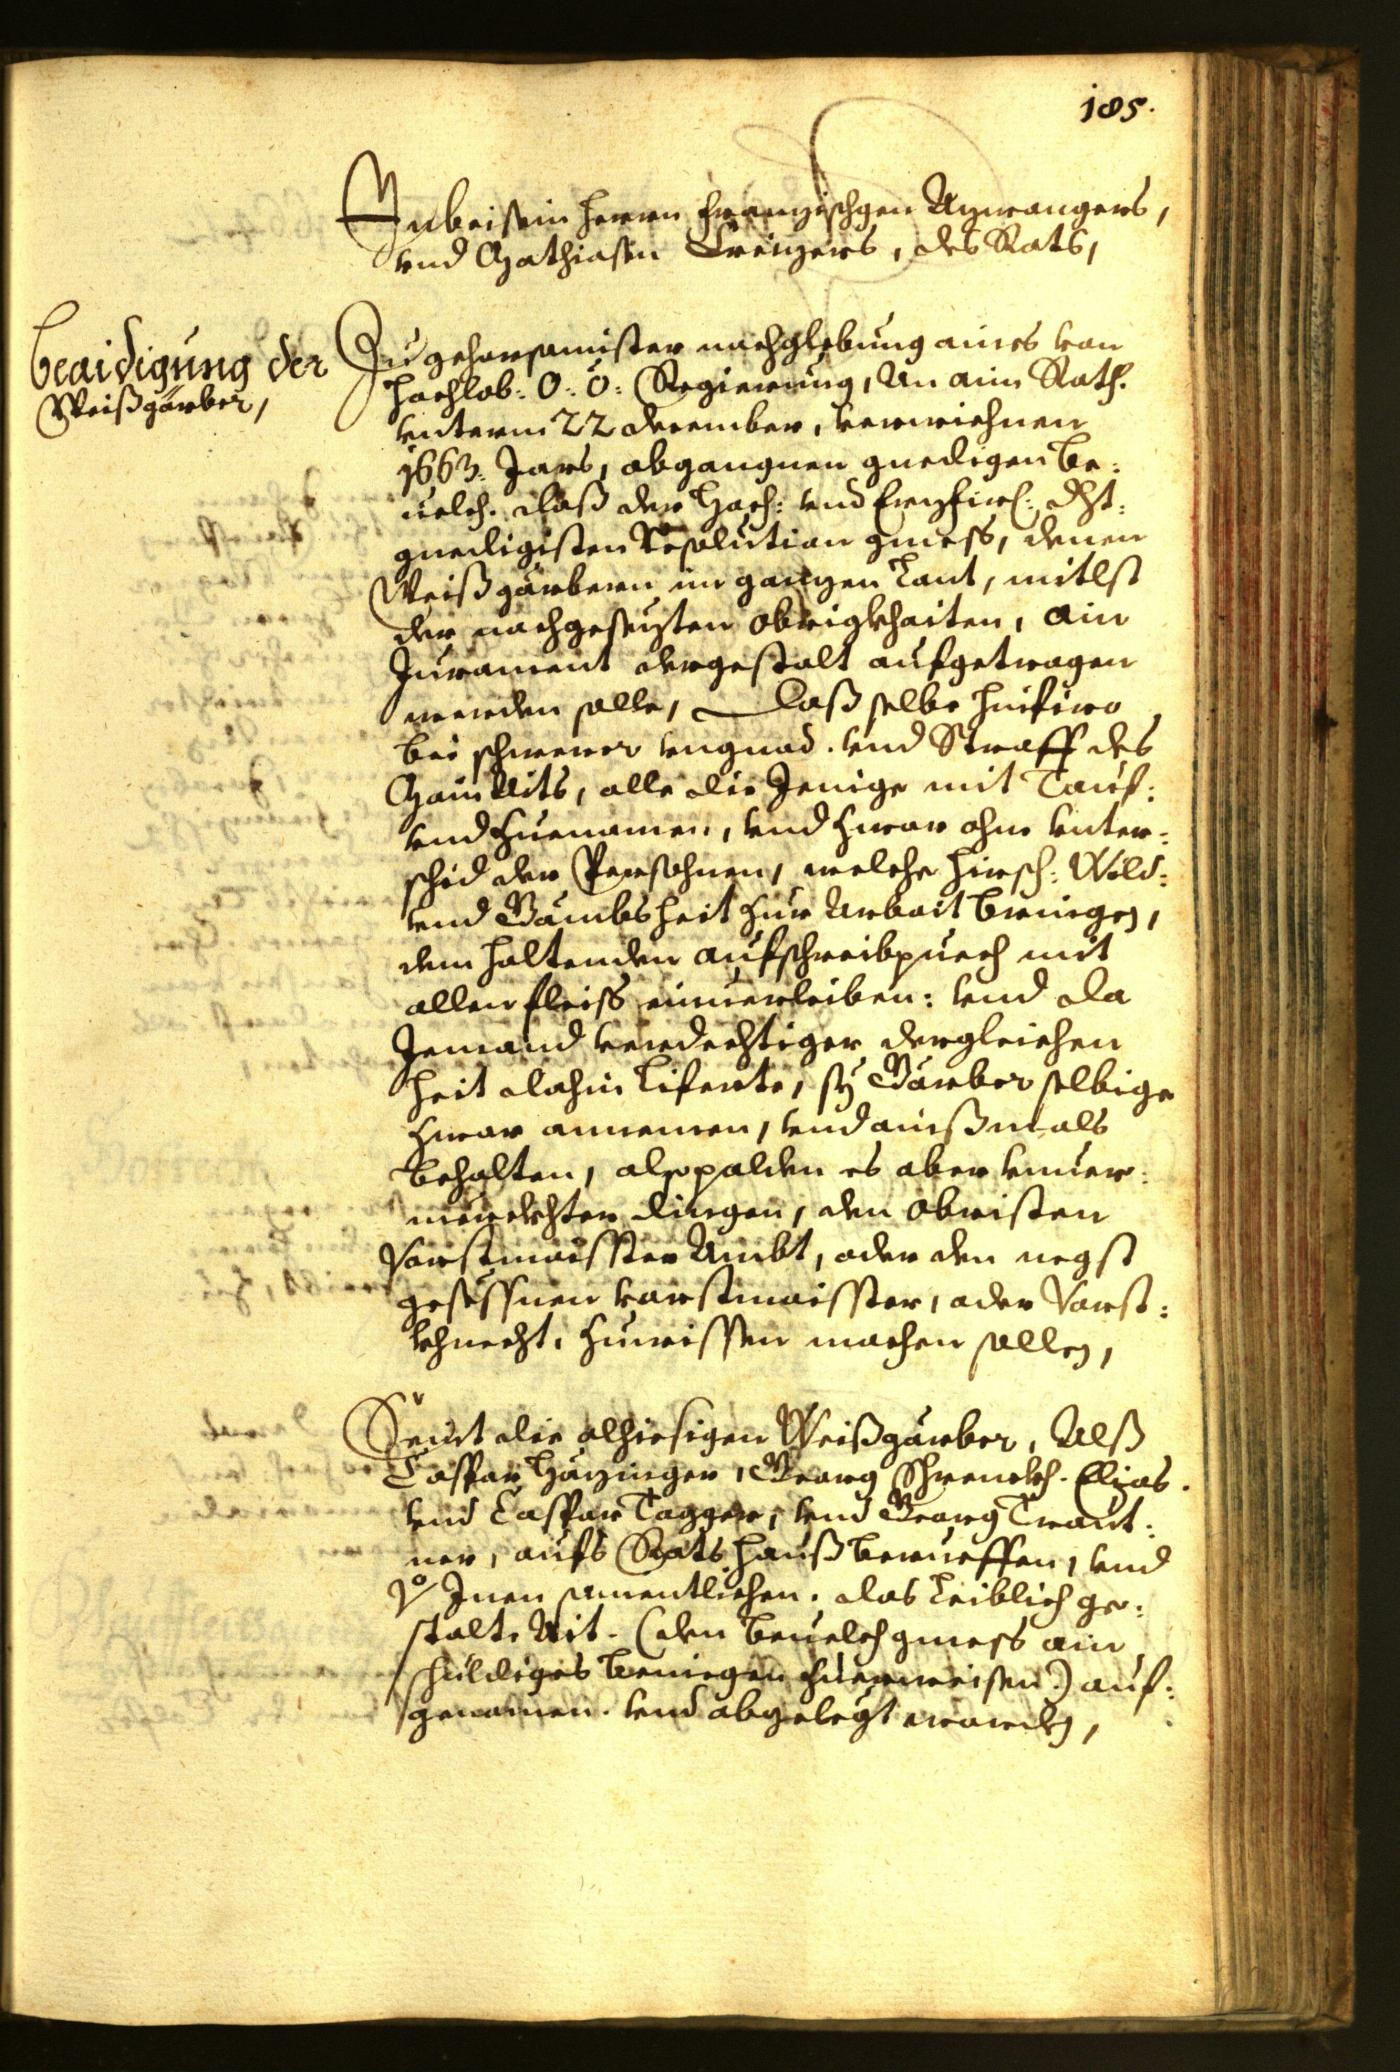 185.
In beisein herrn Franzischgen Azwangers,
vnd Mathiasen Creizers, des Rats,
Beaidigung der
Weißgärber,
Zu gehorsamister nachglebung aines von
Hochlob: O: Ö: Regierung, An aim Rath.
vnterm 22 december, verwichnen
1663. Jars, abgangnen gnedigen be:
uelch. daß der Hoch: vnd Erzfürl: Dht:
gnedigisten Resolution gmess, denen
Weißgärbern im ganzen Lant, mitlst
der nachgesezten Obrigkhaiten, ain
Jurament dergestalt aufgetragen
werden solle, Daß selbe hinfüro
bei schwerer vngnad. vnd Straff des
Mainaits, alle die Jenige mit Tauf:
vnd Zuenamen, vnd zwar ohne vnter:
schid der Persohnen, welche Hirsch: Wild:
vnd Gämbsheit zur Arbait bringen,
dem haltenden aufschreibpuech mit
allen fleiss einuerleiben: vnd da
Jemand verdechtiger dergleichen
heit dahin liferte, sy Gärber selbige
zwar annemen, vnd ainßmals
behalten, alsopalden es aber vnuer:
merckhter dingen, den Obristen
Vorstmaisster Ambt, oder den negst
gesessnen vorstmaisster, oder Vorst:
khnecht, zuwissen machen sollen,
Seint die alhiesigen Weißgärber, Alß
Caspar Häzinger, Georg Schrenckh. Elias.
vnd Caspar Tagger, vnd Georg Traut:
ner, aufs Rats Hauß berueffen, vnd
Vo Inen sament lichen. das Leiblich ge:
stalte Ait. (den beuelch gmess ain
schuldiges benüegen zuerweisen.) auf:
genomen. vnd abgelegt worden,